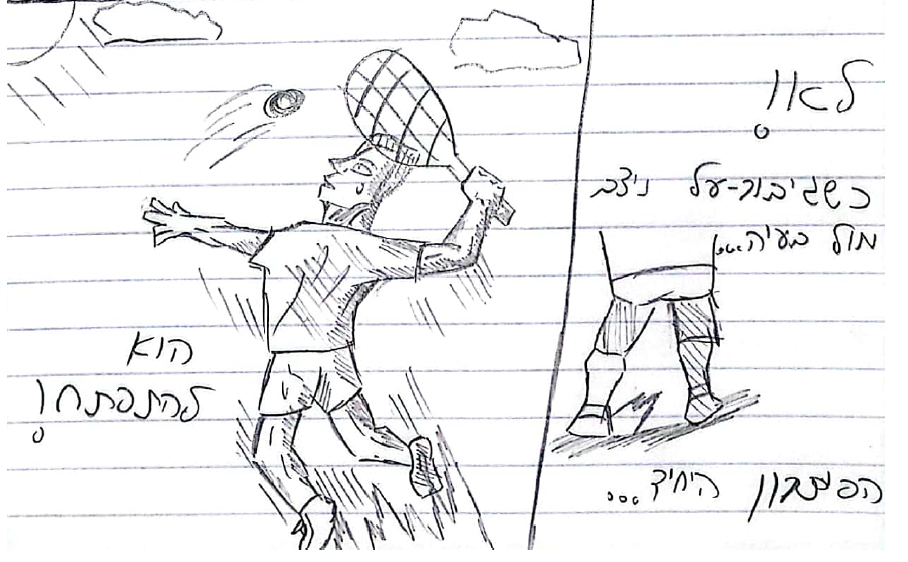 לאו!
כשגיבור-על ניצב
מול בעיה...
הפיתרון היחיד...
הוא
להתפתח!